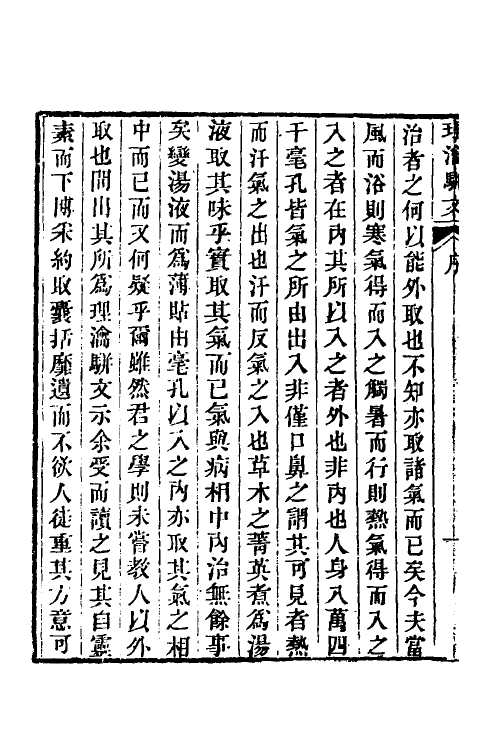 理瀹駢文 序
治者之何以能外取也不知亦取諸氣而已矣今夫當
風而浴則寒氣得而入之觸暑而行則熱氣得而入之
入之者在內其所以入之者外也非內也人身八萬四
千毫孔皆氣之所由出入非僅口鼻之謂其可見者熱
而汗氣之出也汗而反氣之入也草木之菁英煮爲湯
液取其味乎實取其氣而已氣與病相中內治無餘事
矣變湯液而爲薄貼由毫孔以入之內亦取其氣之相
中而已而又何疑乎爾雖然君之學則未嘗教人以外
取也間出其所爲理瀹駢文示余受而讀之見其自靈
素而下博釆約取囊括靡遺而不欲人徒重其方意可